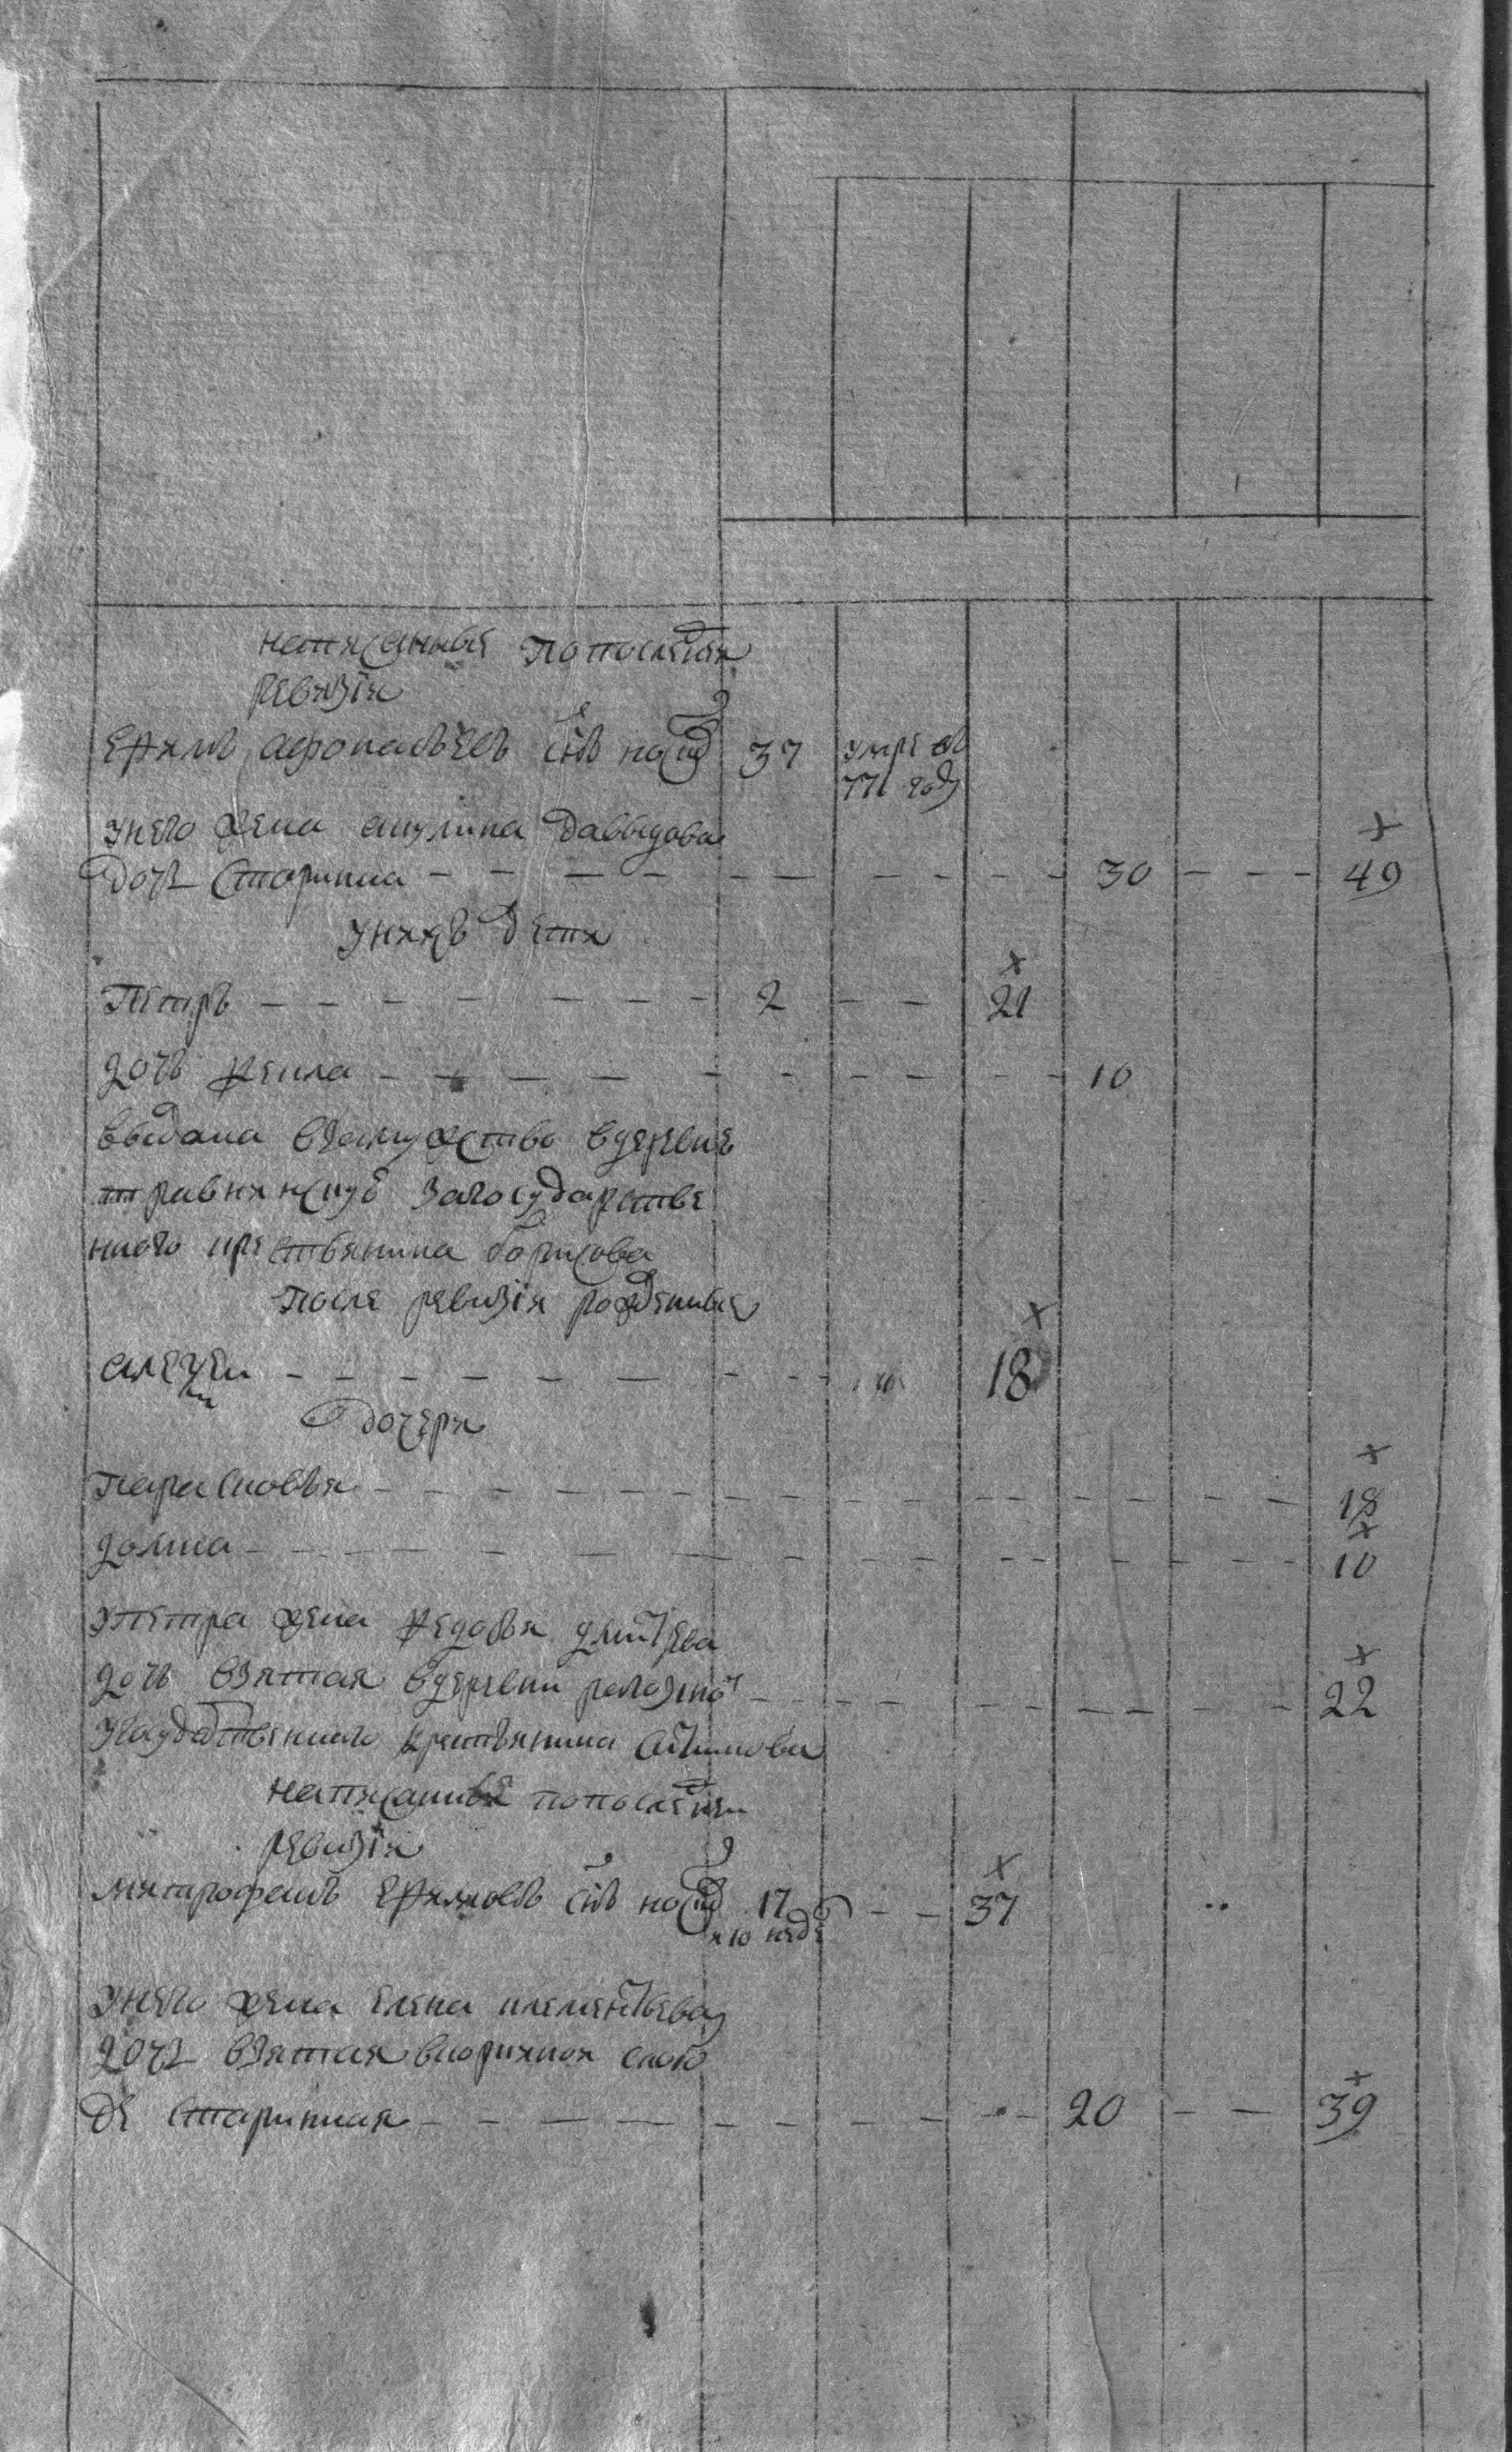 написанныя попоследнеи
ревизiи
ефимъ афонасьевъ снъ носов 37 умре въ
771 году
унего жена акулина давыдова
дочь старинна — — — — 30 — — 49
унихъ дети
петръ — — — — 2 — — 21
дочь фекла — — — — 10
выдана взамужство вдеревне
загосударстве
нного крестьянина борисова
после ревизiи рожденныя
алексеи — — — — 18
дочери
парасковья — — — — 18
домна — — — — 10
упетра жена федосья дмитрева
дочь взятая вдеревни — — — — 22
угосударственного крестьянина
написанныя попоследнеи
ревизiи
митрофанъ ефимовъ снъ носов 17 — — 37
и 10 неде
унего жена елена клементьева
дочь взятая слобо
де старинная — — — — 20 — — 39